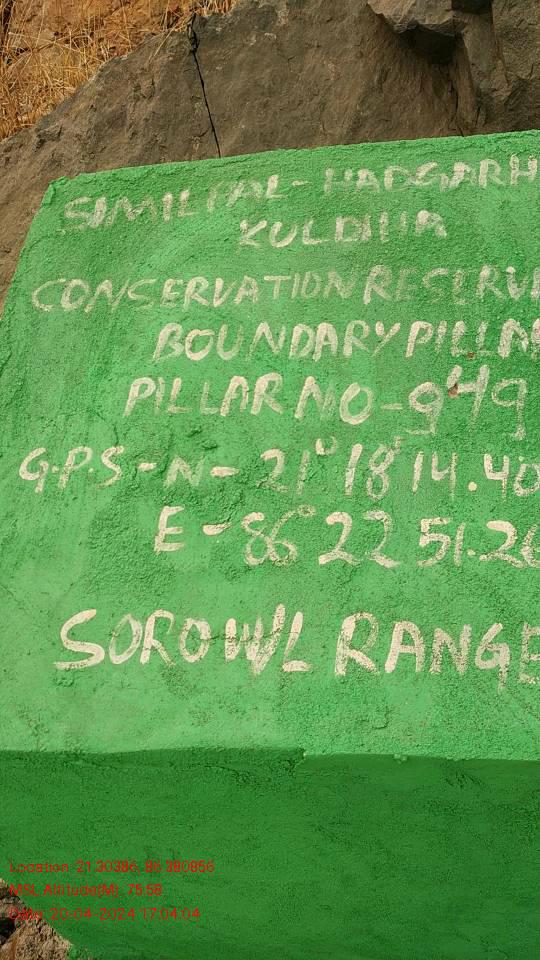 SIMILPAL-HADGARH
KULDIHA
CONSERVATION RESERVE
BOUNDARY PILLAR
PILLAR NO-949
G.P.S-N-21° 18' 14.40
E-86° 22 51.26
SOROWL RANGE
Location: 21.30386, 86.380856
MSL Altitude(M): 75.58
Date: 20-04-2024 17:04:04